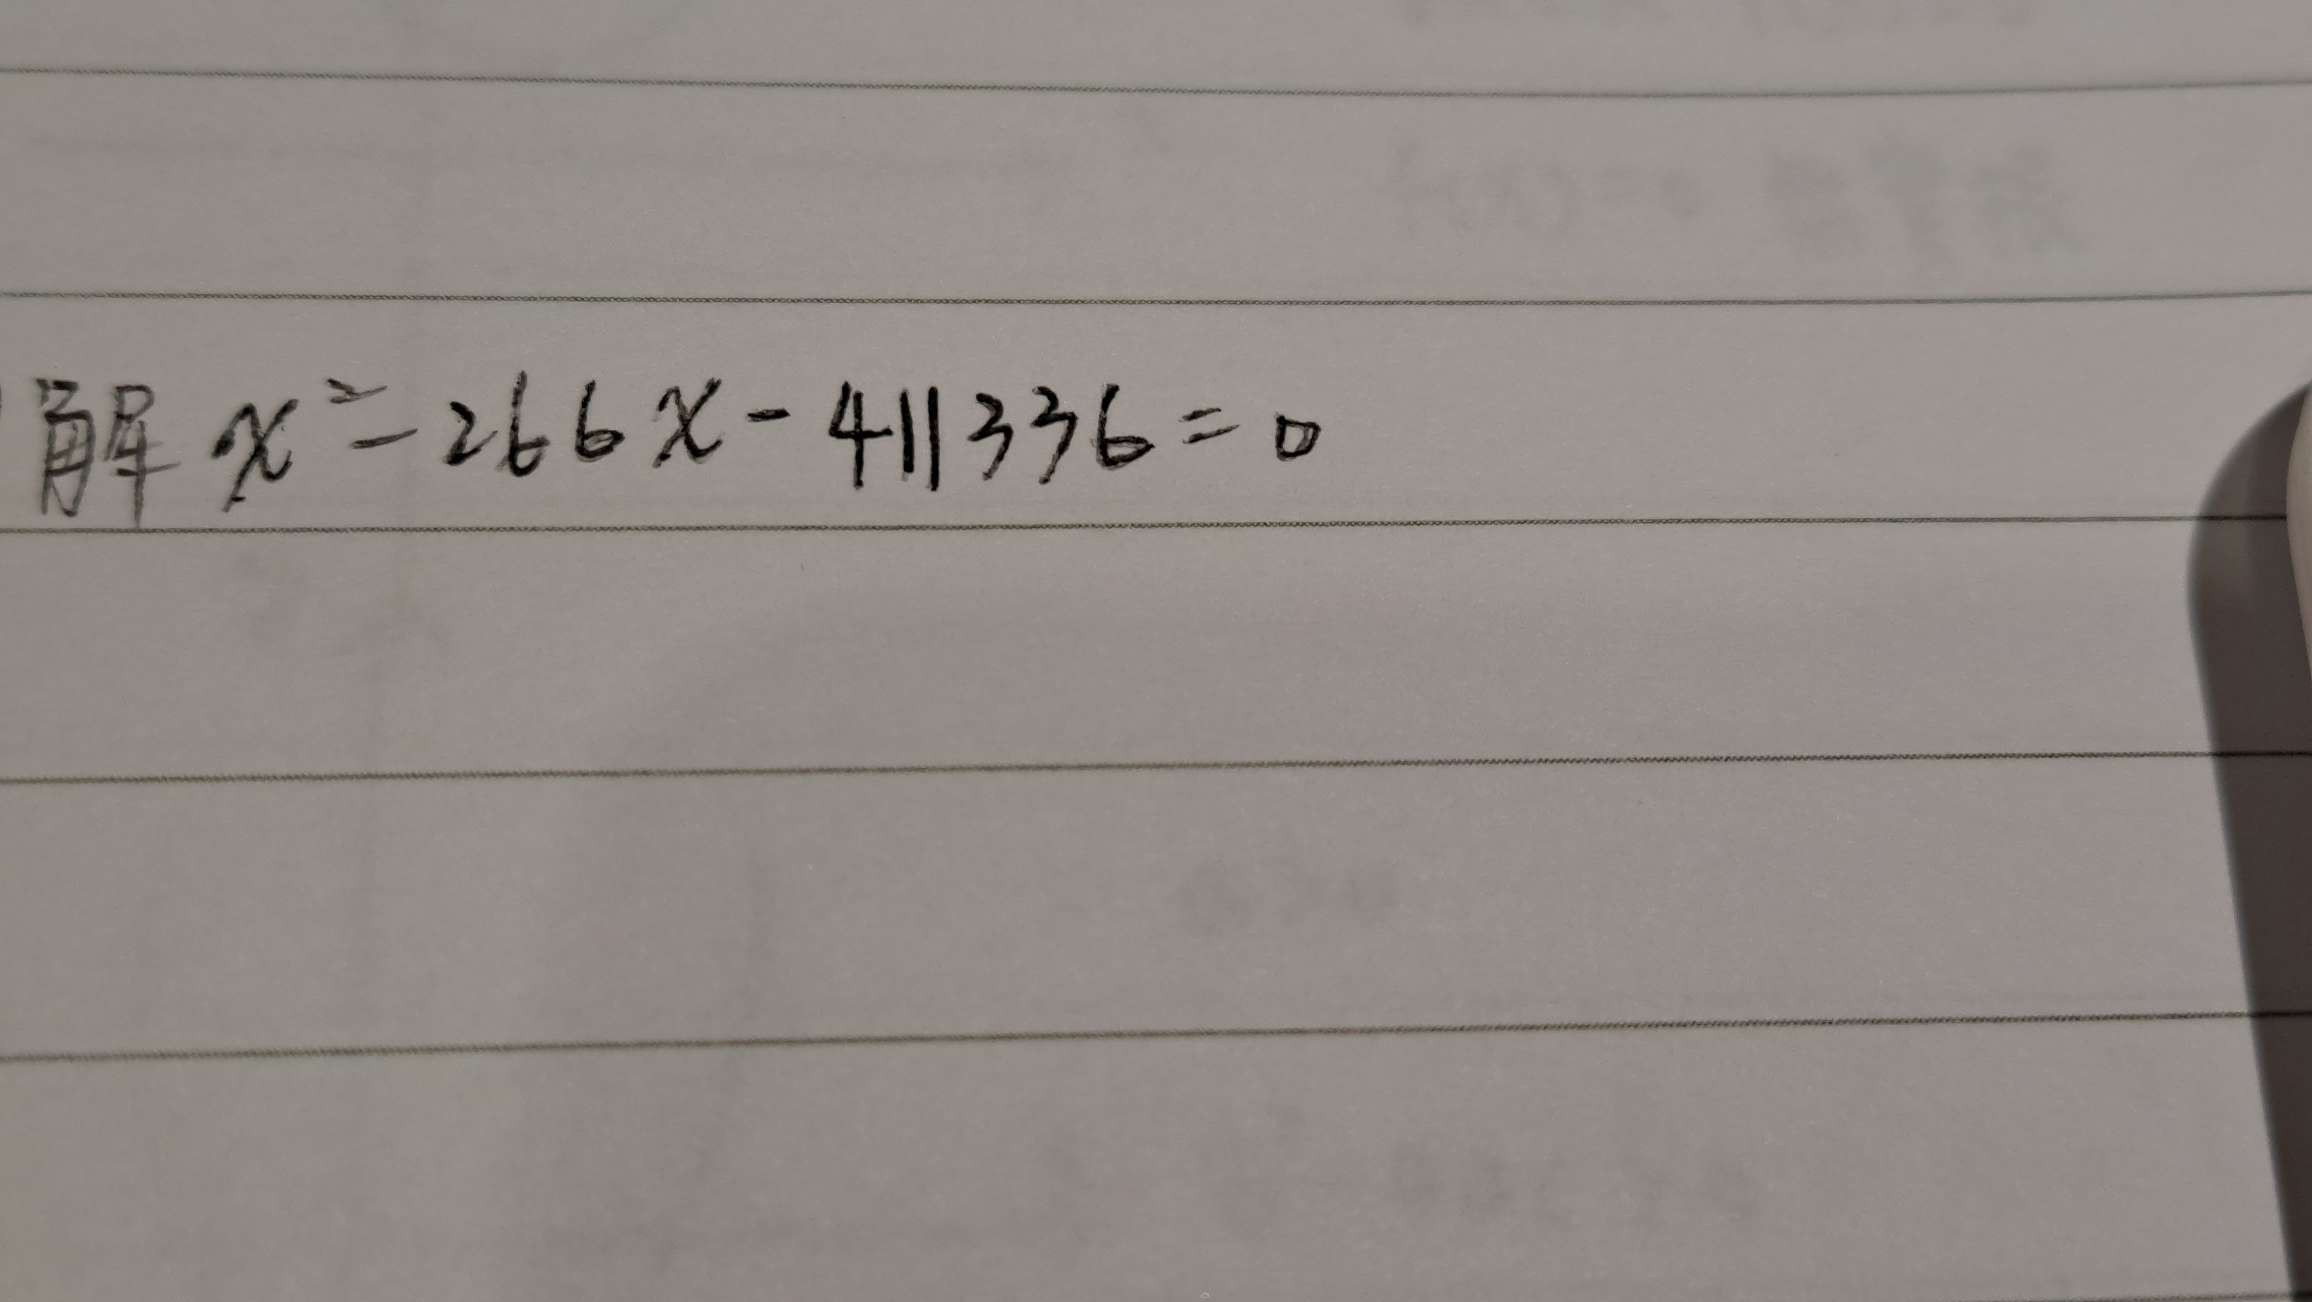 解 x² - 266x - 411336 = 0